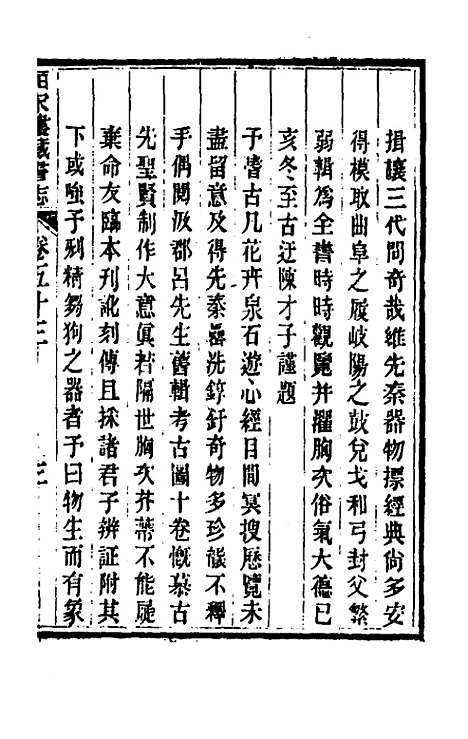 揖讓三代問奇哉維先秦器物摽經典尙多安
得模取曲阜之履岐陽之鼓兌戈和弓封父繁
弱輯爲全書時時觀覽并濯胸次俗氣大德己
亥冬至古迂陳才子謹題
予嗜古凡花卉泉石遊心經目間冥搜歷覽未
盡留意及得先秦罍洗錞釪奇物多珍襲不釋
手偶閱汲郡呂先生舊輯考古圖十卷慨慕古
先聖賢制作大意眞若隔世胸次芥蔕不能屣
棄命友臨本刊訛刻傳且採諸君子辨証附其
下或唯予剜精芻狗之器者予曰物生而有象
皕宋樓藏書志
卷五十三